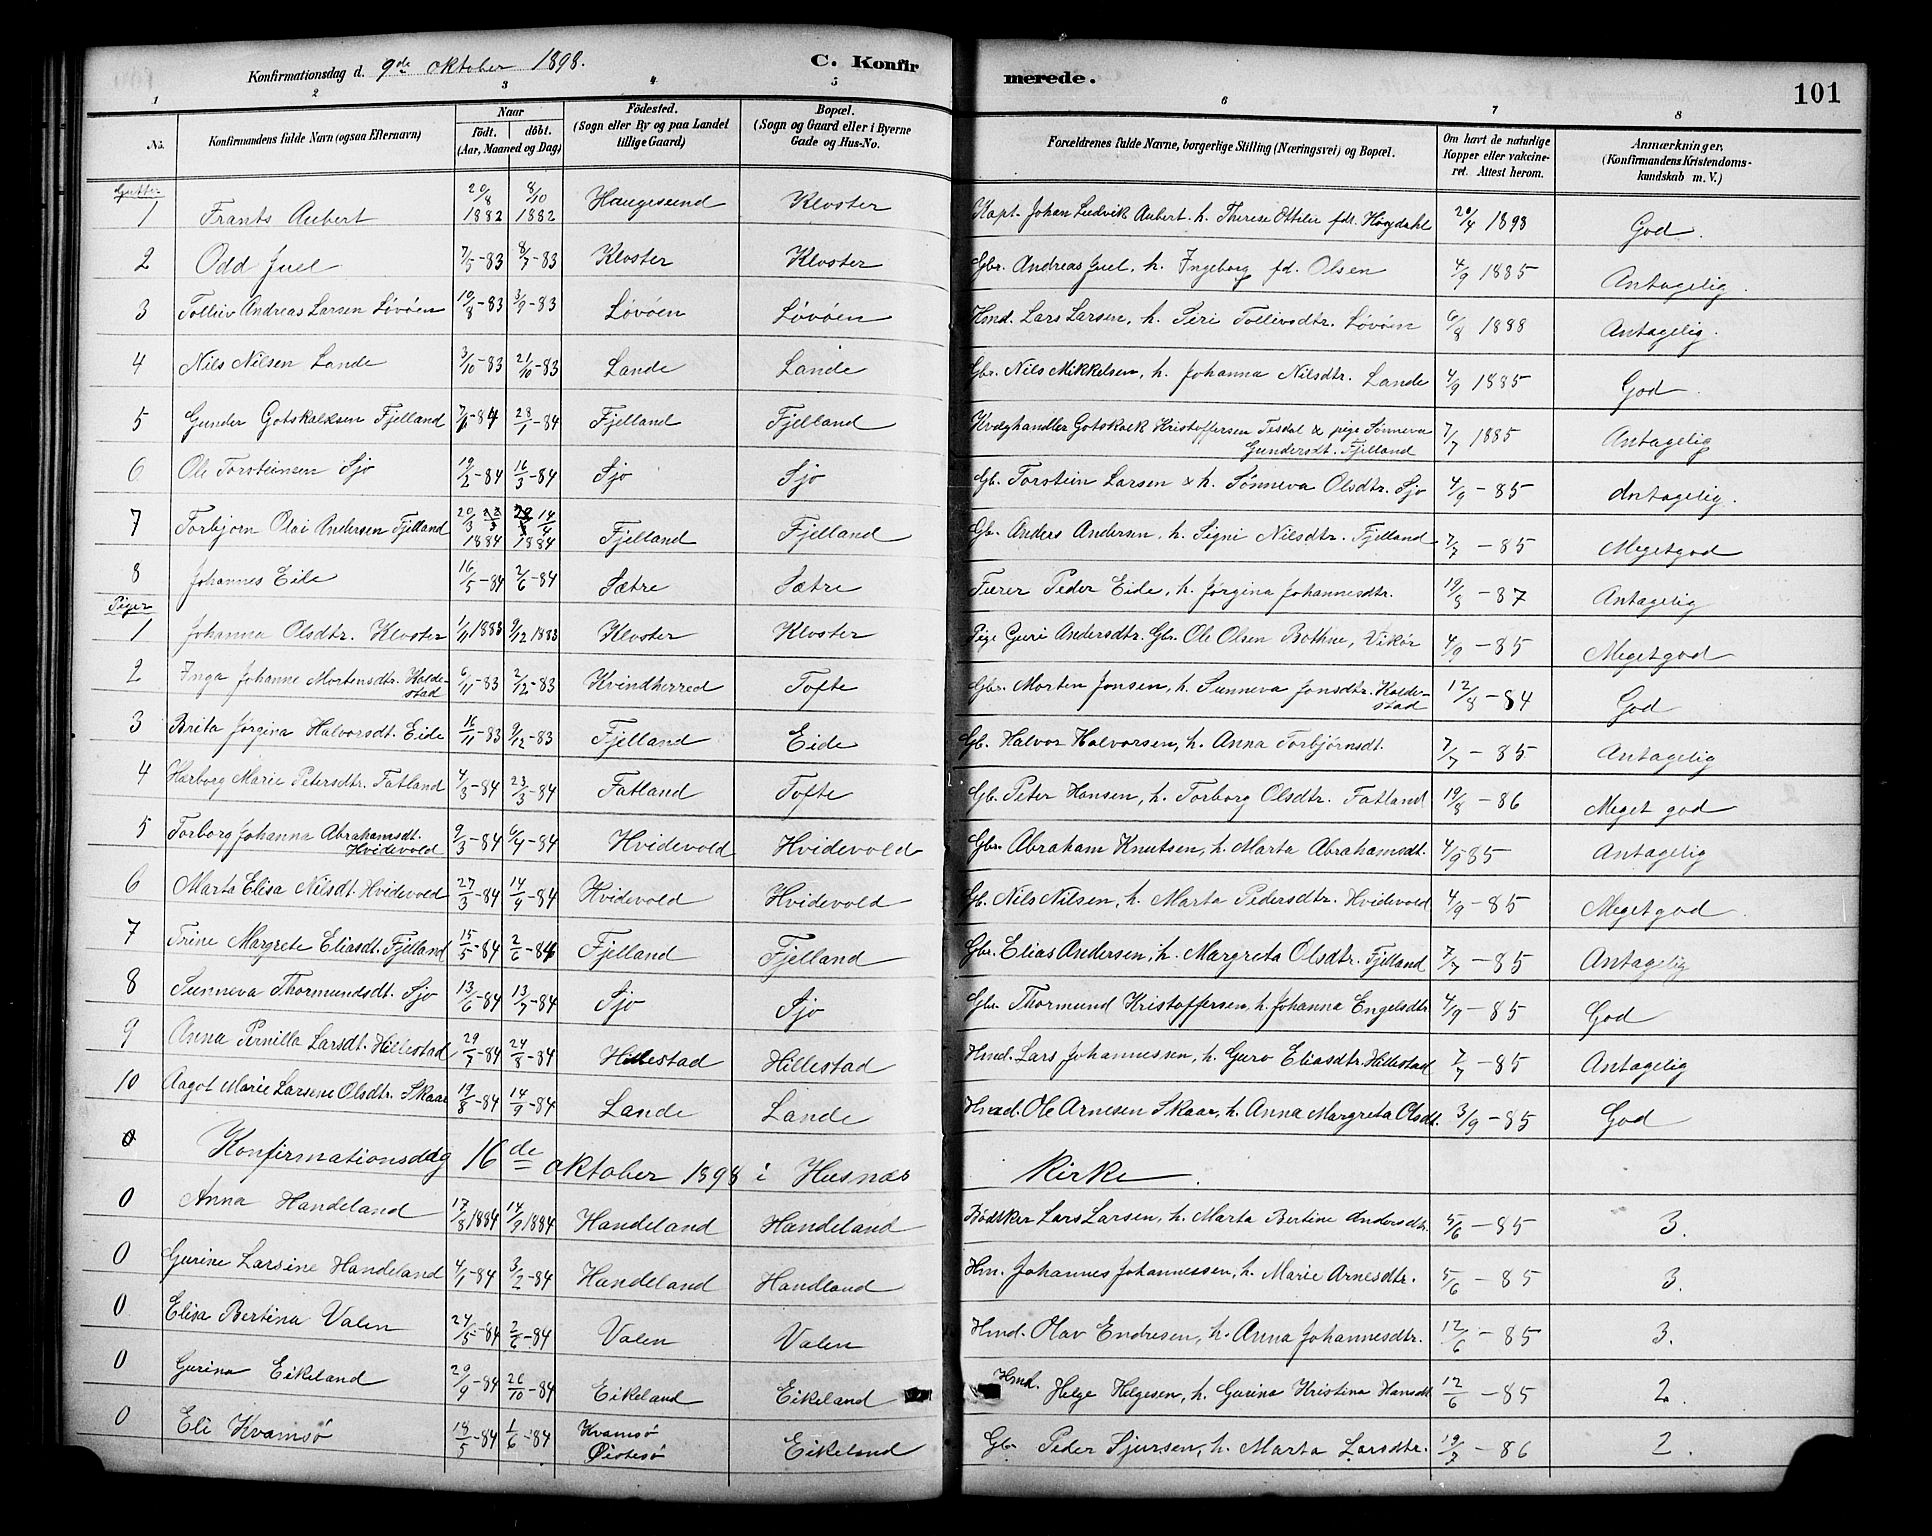 Konfirmationsdag d. 9de oktober 1898. C. Konfirmerede. 101
1 2 3 4 5 6 7 8
No. Konfirmandens fulde Navn (ogsaa Efternavn) Naar födt. döbt. (Aar, Maaned og Dag) Födested. (Sogn eller By og paa Landet tillige Gaard.) Bopæl. (Sogn og Gaard eller i Byerne Gade og Hus-No. Forældrenes fulde Navne, borgerlige Stilling (Næringsvei) og Bopæl. Om havt de naturlige Kopper eller vakcineret. Attest herom. Anmærkninger. (Konfirmandens Kristendomskundskab m. V.)
Gutter
1 Frants Aubert 20/8 1882 8/10 1882 Haugesund Kloster Kapt. Johan Ludvik Aubert. h. Therese Ottilie fdt. Høydahl 20/4 1898 God.
2 Odd Juel 7/5-83 8/7-83 Kloster Kloster Gbr. Andreas Juel, h. Ingeborg fd. Olsen 4/9 1885 Antagelig.
3 Tolleiv Andreas Larsen Løvøen 10/8-83 3/9-83 Løvøen Løvøen Hmd. Lars Larsen, h. Siri Tollivsdtr. Løvøen 6/8 1888 Antagelig.
4 Nils Nilsen Lande 3/10-83 21/10-83 Lande Lande Gbr. Nils Mikkelsen, h. Johanna Nilsdtr. Lande 4/9 1885 God.
5 Gunder Gotskalksen Fjelland 7/1-84 28/1-84 Fjelland Fjelland Kvæghandler Gotskalk Kristoffersen Tesdal & pige Sønneva Gundersdt. Fjelland 7/7 1885 Antagelig
6 Ole Torsteinsen Sjo 19/2-84 16/3-84 Sjo Sjo Gb. Torstein Larsen & h. Sønneva Olsdtr. Sjo 4/9-85 Antagelig.
7 Torbjorn Olai Andersen Fjelland 20/3 1884 14/4 1884 Fjelland Fjelland Gb. Anders Andersen, h. Signi Nilsdtr. Fjelland 7/7-85 Megetgod
8 Johannes Eide 16/5-84 2/6-84 Sætre Sætre Furer Peder Eide, h. Jørgina Johannesdtr. 19/8-87 Antagelig
Piger
1 Johanna Olsdtr. Kloster 1/11 1883 9/12 1883 Kloster Kloster Pige Guri Andersdtr. Gbr. Ole Olsen Bothne, Vikør 4/9-85 Megetgod
2 Inga Johanne Mortensdtr. Haldestad 6/11-83 2/12-83 Kvindherred Tofte Gbr. Morten Jonsen, h. Sunneva Jonsdtr. Haldestad 12/8-84 God
3 Brita Jørgina Halvorsdt. Eide 16/11-83 9/12-83 Fjelland Eide Gb. Halvor Halvorsen, h. Anna Torbjørnsdt. 7/7-85 Antagelig
4 Harborg Marie Petersdtr. Fatland 4/3-84 23/3-84 Fatland Tofte Gb. Peter Hansen, h. Torborg Olsdtr. Fatland 19/8-86 Meget god
5 Torborg Johanna Abrahamsdt. Hvidevold 9/3-84 6/4-84 Hvidevold Hvidevold Gbr. Abraham Knutsen, h. Marta Abrahamsdt. 4/9-85 Antagelig
6 Marta Elisa Nilsdt. Hvidevold 27/3-84 14/4-84 Hvidevold Hvidevold Gb. Nils Nilsen, h. Marta Pedersdtr. Hvidevold 4/9-85 Megetgod.
7 Trine Margrete Eliasdt. Fjelland 15/5-84 2/6-84 Fjelland Fjelland Gbr. Elias Andersen, h. Margreta Olsdtr. Fjelland 7/7-85 Antagelig
8 Sunneva Thormundsdt. Sjo 13/6-84 13/7-84 Sjo Sjo Gbr. Thormund Kristoffersen, h. Johanna Engelsdtr 4/9-85 God
9 Anna Pernilla Larsdt. Hillestad 29/7-84 24/8-84 Hillestad Hillestad Hmd. Lars Johannessen, h. Guro Eliasdtr. Hillestad 7/7-85 Antagelig
10 Aagot Marie Larsine Olsdtr. Skaar 19/8-84 14/9-84 Lande Lande Hmd. Ole Arnesen Skaar, h. Anna Margreta Olsdt. 3/9-85 God
0 Konfirmationsdag 16de oktober 1898 i Husnæs Kirke.
0 Anna Handeland 17/8 1884 14/9 1884 Handeland Handeland Bødtker Lars Larsen, h. Marta Bertine Andersdtr. 5/6-85 3.
0 Gurine Larsine Handeland 4/1-84 3/2-84 Handeland Handland Hm. Johannes Johannessen, h. Marie Arnesdtr. 5/6-85 3.
0 Elisa Bertina Valen 24/5-84 2/6-84 Valen Valen Hmd. Olav Endresen, h. Anna Johannesdtr. 12/6-85 3.
0 Gurina Eikeland 29/9-84 26/10-84 Eikeland Eikeland Hmd. Helge Helgesen, h. Gurina Kristina Hansdt. 12/6-85 2
0 Eli Kvamsø 18/5-84 1/6-84 Kvamsø Øistesø Eikeland Gb. Peder Sjursen, h. Marta Larsdtr. 19/7-86 2.